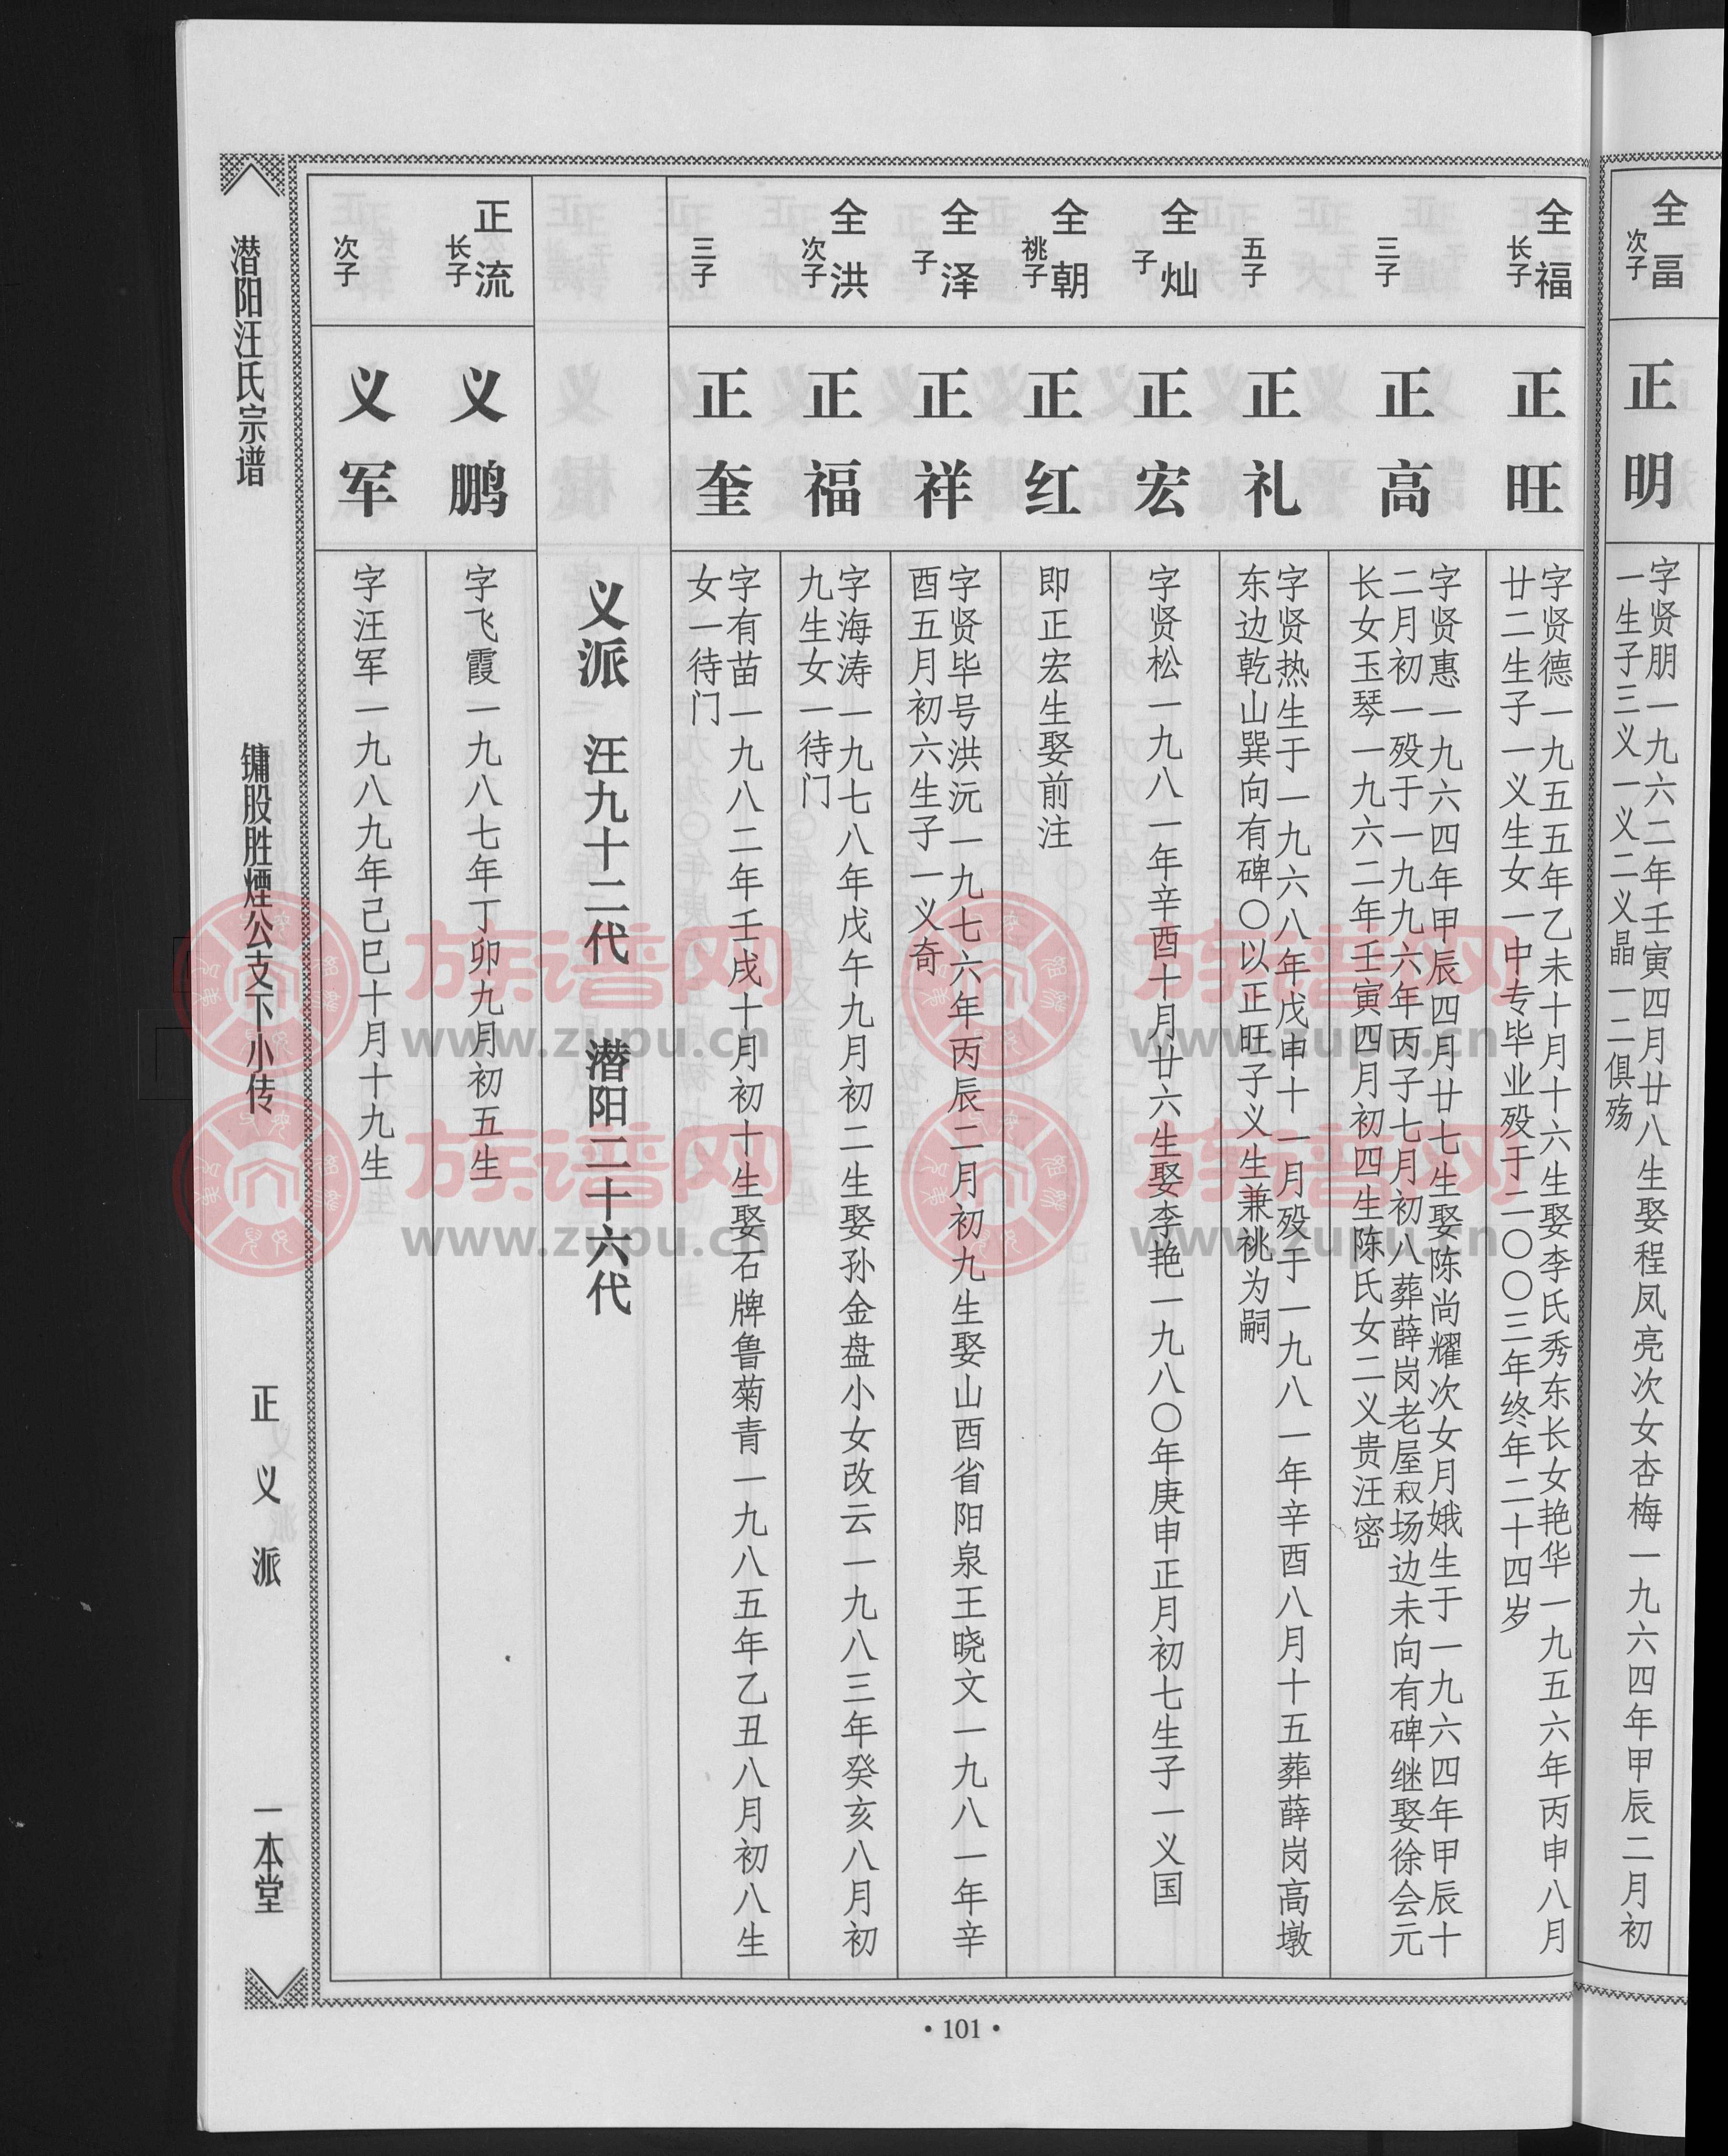 全畐
次子
正明
字贤朋一九六二年壬寅四月廿八生娶程凤亮次女杏梅一九六四年甲辰二月初
一生子三义一义二义晶一二俱殇
全福
长子
正旺
字贤德一九五五年乙未十月十六生娶李氏秀东长女艳华一九五六年丙申八月
廿二生子一义生女一中专毕业殁于二〇〇三年终年二十四岁
三子
正高
字贤惠一九六四年甲辰四月廿七生娶陈尚耀次女月娥生于一九六四年甲辰十
二月初一殁于一九九六年丙子七月初八葬薛岗老屋叔场边未向有碑继娶徐会元
长女玉琴一九六二年壬寅四月初四生陈氏女二义贵汪密
五子
正礼
字贤热生于一九六八年戊申十一月殁于一九八一年辛酉八月十五葬薛岗高墩
东边乾山巽向有碑〇以正旺子义生兼祧为嗣
全灿
子
正宏
字贤松一九八一年辛酉十月廿六生娶李艳一九八〇年庚申正月初七生子一义国
全朝
祧子
正红
即正宏生娶前注
全泽
子
正祥
字贤毕号洪沅一九七六年丙辰二月初九生娶山酉省阳泉王晓文一九八一年辛
酉五月初六生子一义奇
全洪
次子
正福
字海涛一九七八年戊午九月初二生娶孙金盘小女改云一九八三年癸亥八月初
九生女一待门
三子
正奎
字有苗一九八二年壬戌十月初十生娶石牌鲁菊青一九八五年乙丑八月初八生
女一待门
义派 汪九十二代 潜阳二十六代
正流
长子
义鹏
字飞霞一九八七年丁卯九月初五生
次子
义军
字汪军一九八九年己巳十月十九生
潜阳汪氏宗谱 镛股胜煙公支下小传 正义派 一本堂
·101·
族谱网
www.zupu.cn
族谱网
www.zupu.cn
族谱网
www.zupu.cn
族谱网
www.zupu.cn